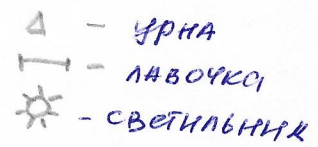 - урна
- лавочка
- светильник